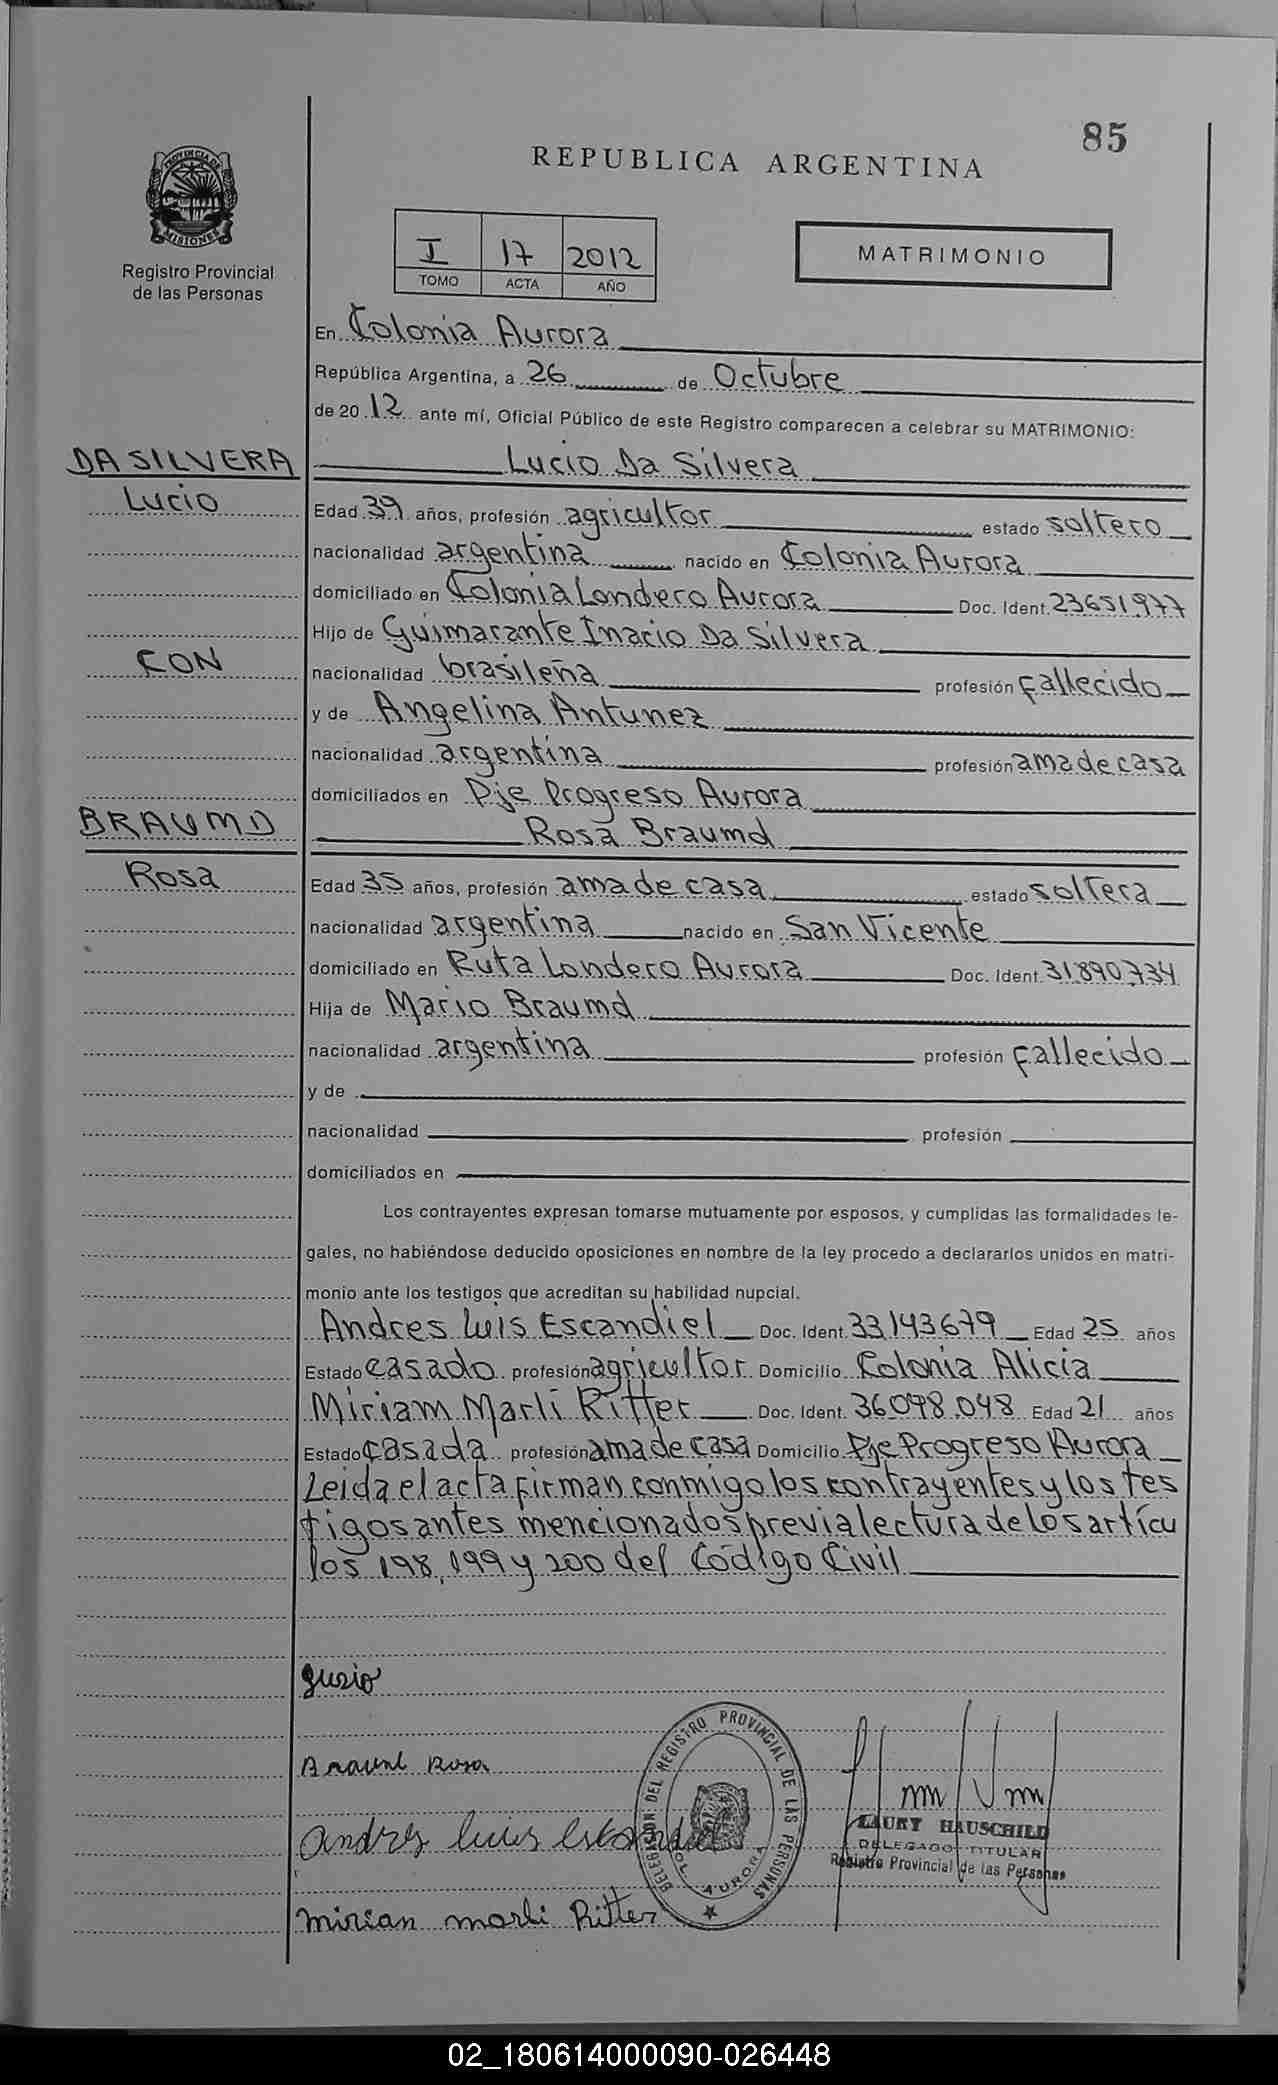 85
REPUBLICA ARGENTINA
PROVINCIA DE
MISIONES
Registro Provincial
de las Personas
I 17 2012
TOMO ACTA AÑO
MATRIMONIO
En Colonia Aurora
República Argentina, a 26 de Octubre
de 2012 ante mí, Oficial Público de este Registro comparecen a celebrar su MATRIMONIO:
DA SILVERA Lucio Da Silvera
Lucio Edad 39 años, profesión agricultor estado soltero
nacionalidad argentina nacido en Colonia Aurora
domiciliado en Colonia Londero Aurora Doc. Ident. 23651977
Hijo de Guimarante Inacio Da Silvera
CON nacionalidad brasileña profesión fallecido
y de Angelina Antunez
nacionalidad argentina profesión ama de casa
domiciliados en Pje Progreso Aurora
BRAUMD Rosa Braumd
Rosa Edad 35 años, profesión ama de casa estado soltera
nacionalidad argentina nacido en San Vicente
domiciliado en Ruta Londero Aurora Doc. Ident. 31890734
Hija de Mario Braumd
nacionalidad argentina profesión fallecido
y de
nacionalidad profesión
domiciliados en
Los contrayentes expresan tomarse mutuamente por esposos, y cumplidas las formalidades le-
gales, no habiéndose deducido oposiciones en nombre de la ley procedo a declararlos unidos en matri-
monio ante los testigos que acreditan su habilidad nupcial.
Andres Luis Escandiel Doc. Ident. 33143679 Edad 25 años
Estado casado profesión agricultor Domicilio Colonia Alicia
Miriam Marli Ritter Doc. Ident. 36.098.048 Edad 21 años
Estado casada profesión ama de casa Domicilio Pje Progreso Aurora
Leida el acta firman conmigo los contrayentes y los tes
tigos antes mencionados previa lectura de los artícu
los 198, 199 y 200 del Código Civil
Braund Rosa
andres luis
mirian marli Ritter
DELEGACION DEL REGISTRO PROVINCIAL DE LAS PERSONAS
COL AURORA
LAURY HAUSCHILD
DELEGADO TITULAR
Registro Provincial de las Personas
02_180614000090-026448